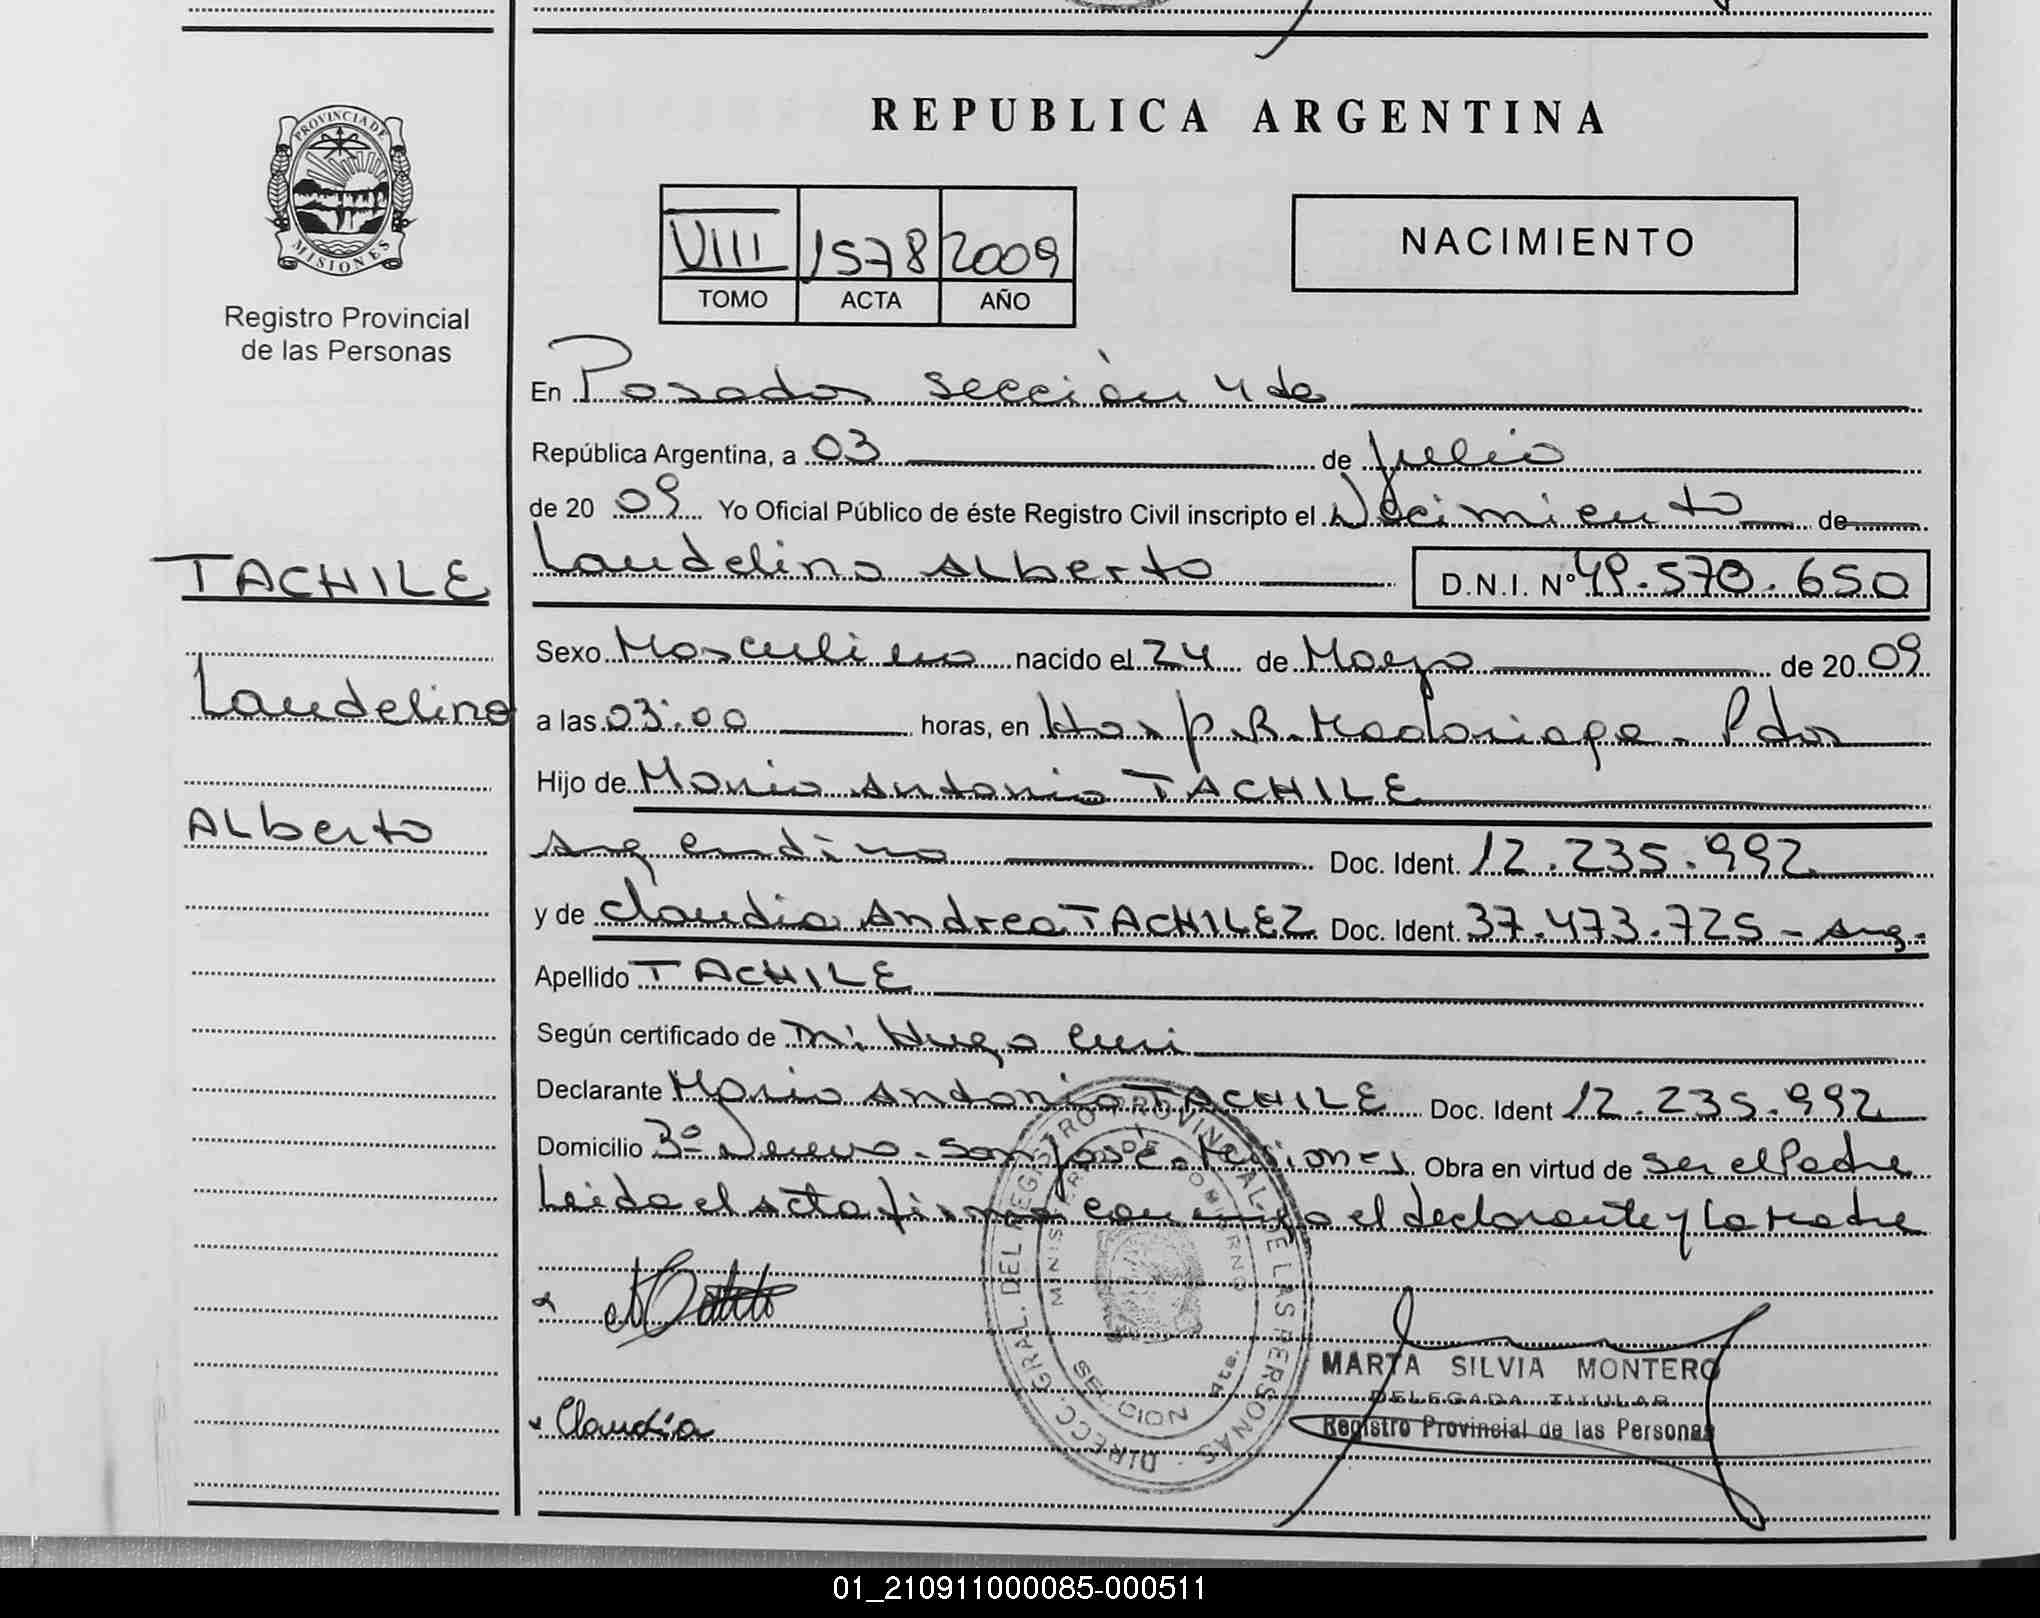 REPUBLICA ARGENTINA
PROVINCIA DE MISIONES
Registro Provincial
de las Personas
VIII 1578 2009
TOMO ACTA AÑO
NACIMIENTO
En Posadas sección 4 de
República Argentina, a 03 de Julio
de 20 09 Yo Oficial Público de éste Registro Civil inscripto el Nacimiento de
Laudelino Alberto D.N.I. Nº 49.570.650
TACHILE
Laudelino
Alberto
Sexo Masculino nacido el 24 de Mayo de 20 09
a las 03:00 horas, en Hosp. R. Madariaga - Pdas
Hijo de Mario Antonio TACHILE
Argentino Doc. Ident. 12.235.992
y de Claudia Andrea TACHILEZ Doc. Ident. 37.473.725 - Arg.
Apellido TACHILE
Según certificado de Hugo
Declarante Mario Antonio TACHILE Doc. Ident 12.235.992
Domicilio San José - Misiones Obra en virtud de ser el Padre
Leida el acta firma conmigo el declarante y la Madre
Claudia
DIRECC. GRAL. DEL REGISTRO PROVINCIAL DE LAS PERSONAS
MARTA SILVIA MONTERO
DELEGADA TITULAR
Registro Provincial de las Personas
01_210911000085-000511